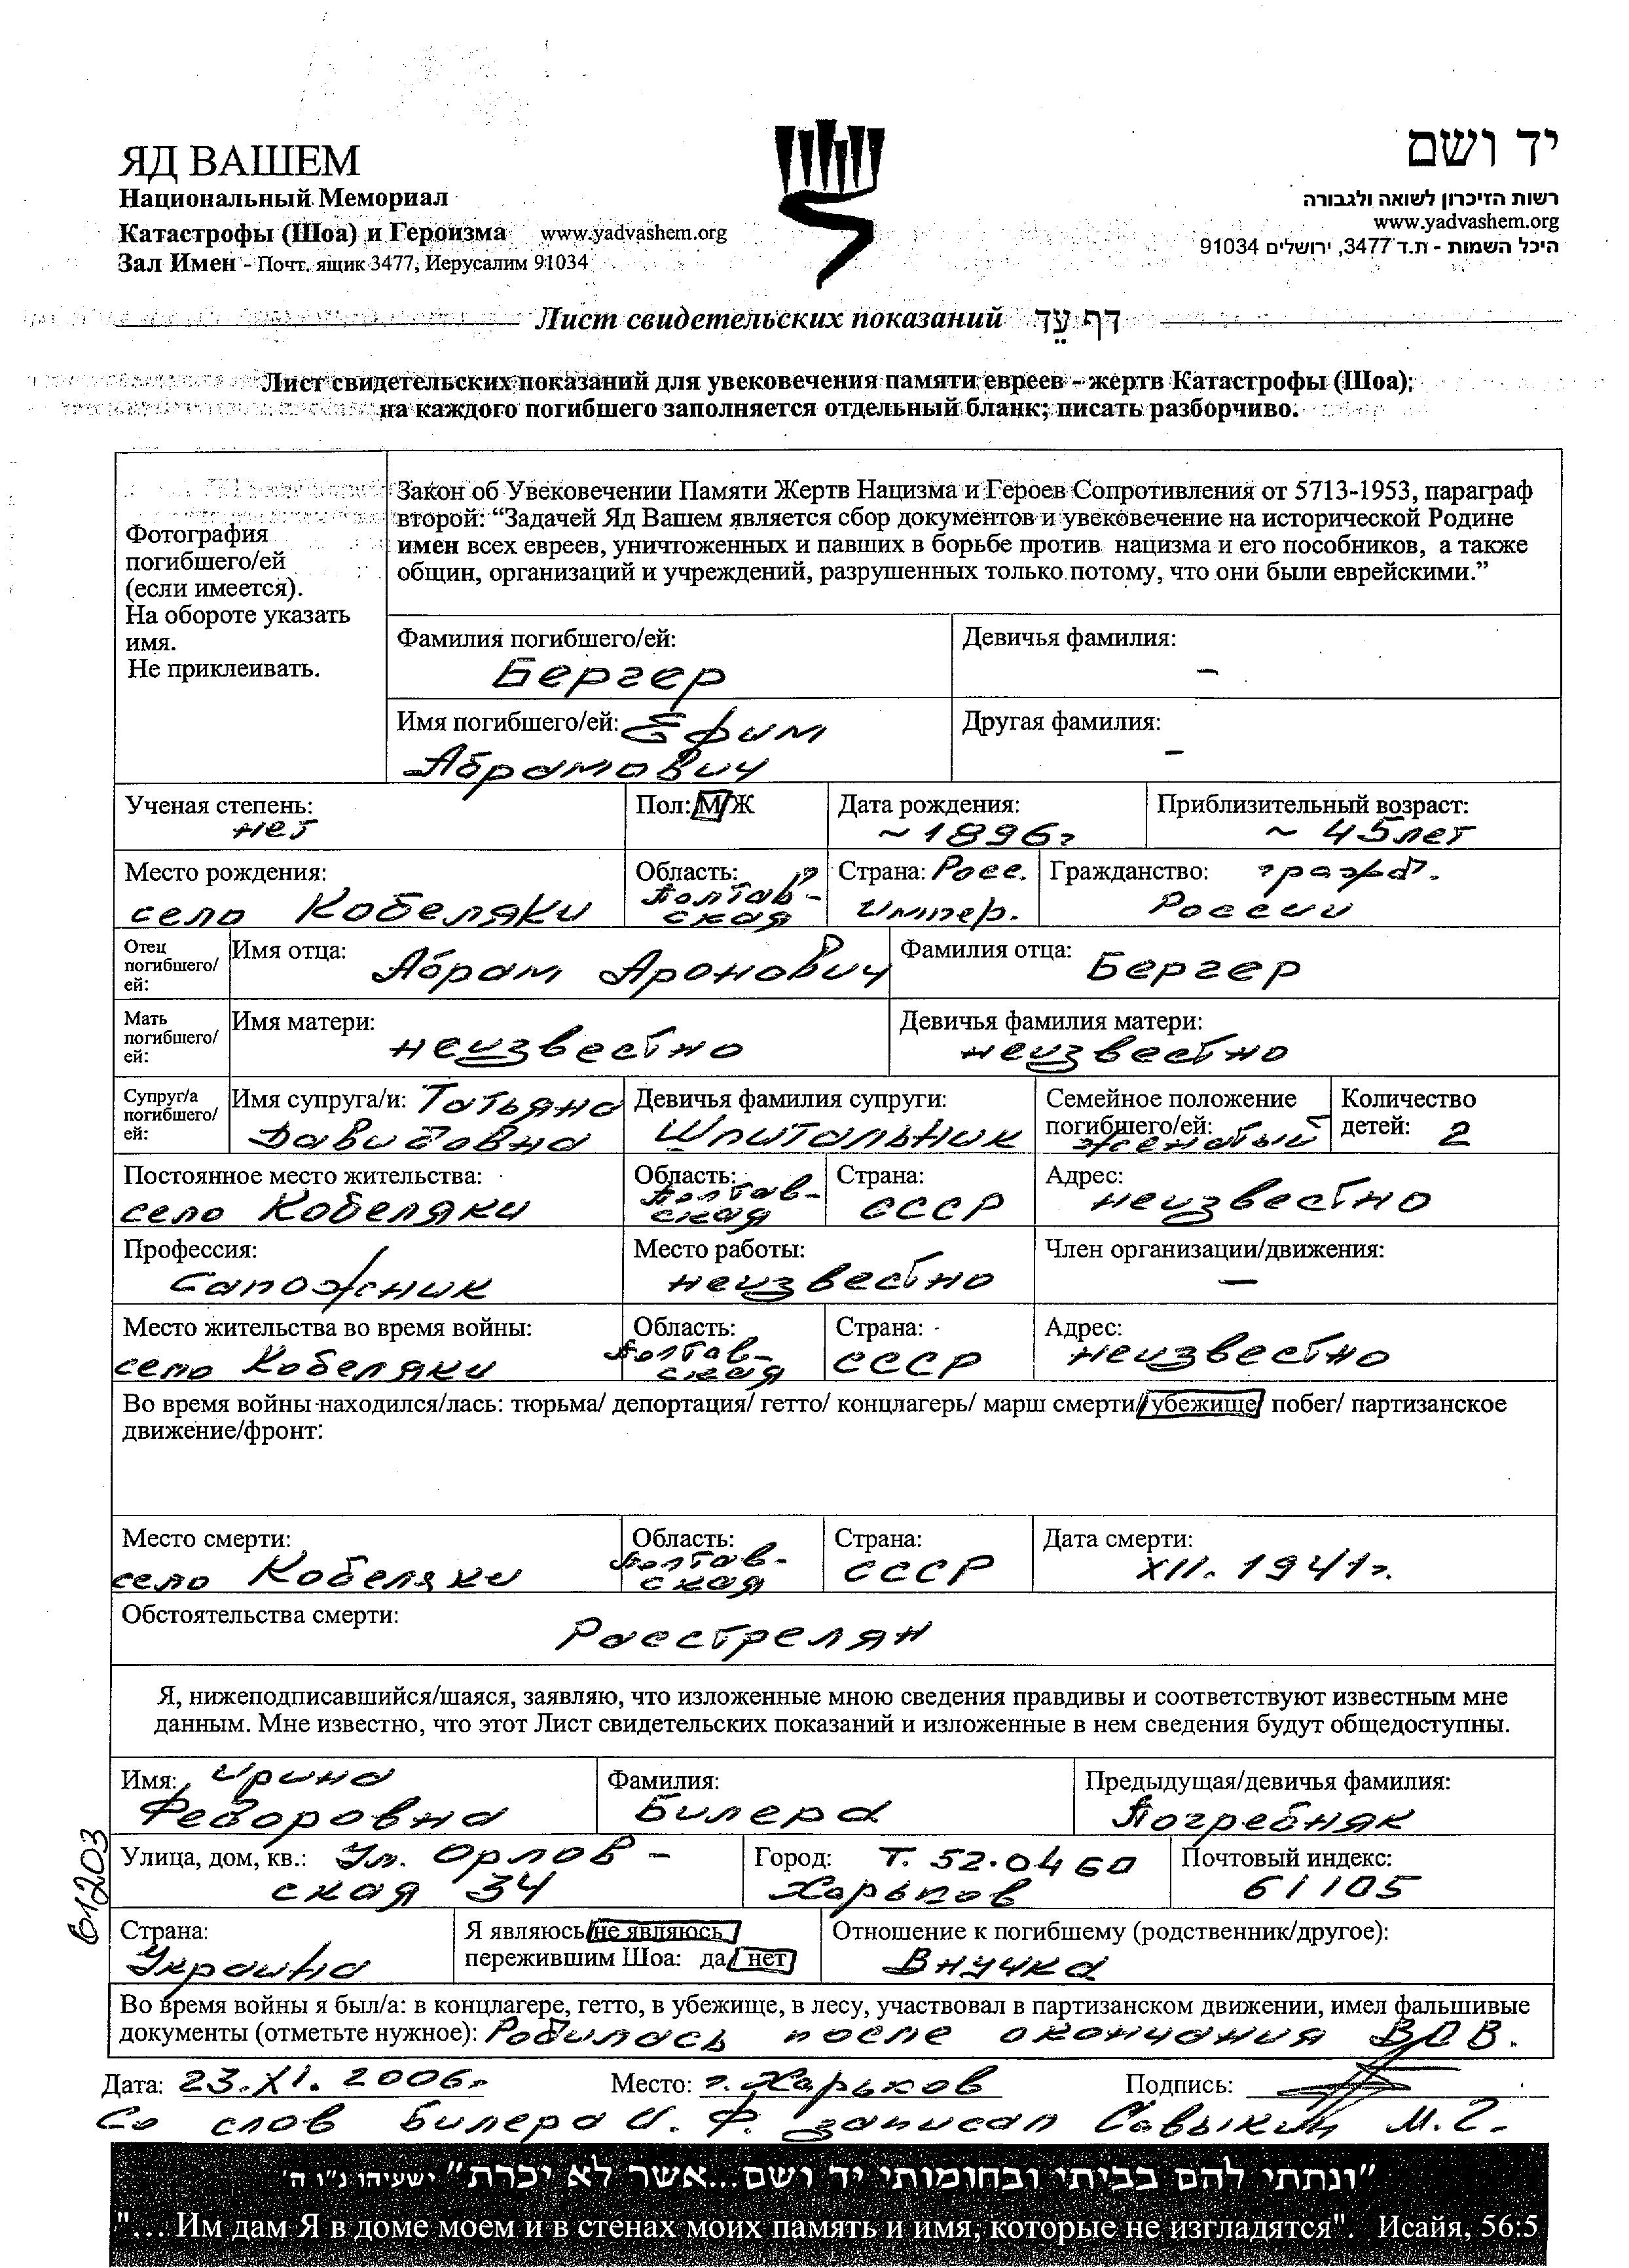 ЯД ВАШЕМ
Национальный Мемориал
Катастрофы (Шоа) и Героизма www.yadvashem.org
Зал Имен - Почт. ящик 3477, Иерусалим 91034
יד ושם
רשות הזיכרון לשואה ולגבורה
www.yadvashem.org
היכל השמות - ת.ד 3477, ירושלים 91034
Лист свидетельских показаний דף עֵד
Лист свидетельских показаний для увековечения памяти евреев - жертв Катастрофы (Шоа);
на каждого погибшего заполняется отдельный бланк; писать разборчиво.
Фотография
погибшего/ей
(если имеется).
На обороте указать
имя.
Не приклеивать.
Закон об Увековечении Памяти Жертв Нацизма и Героев Сопротивления от 5713-1953, параграф
второй: “Задачей Яд Вашем является сбор документов и увековечение на исторической Родине
имен всех евреев, уничтоженных и павших в борьбе против нацизма и его пособников, а также
общин, организаций и учреждений, разрушенных только потому, что они были еврейскими.”
Фамилия погибшего/ей:
Бергер
Девичья фамилия:
–
Имя погибшего/ей: Ефим
Абрамович
Другая фамилия:
–
Ученая степень:
нет
Пол: М/Ж
Дата рождения:
~ 1896 г
Приблизительный возраст:
~ 45 лет
Место рождения:
село Кобеляки
Область:
Полтав-
ская
Страна: Росс.
Импер.
Гражданство: гражд.
России
Отец
погибшего/
ей:
Имя отца:
Абрам Аронович
Фамилия отца:
Бергер
Мать
погибшего/
ей:
Имя матери:
неизвестно
Девичья фамилия матери:
неизвестно
Супруг/а
погибшего/
ей:
Имя супруга/и: Татьяна
Давидовна
Девичья фамилия супруги:
Шпитальник
Семейное положение
погибшего/ей:
женатый
Количество
детей: 2
Постоянное место жительства:
село Кобеляки
Область:
Полтав-
ская
Страна:
СССР
Адрес:
неизвестно
Профессия:
Сапожник
Место работы:
неизвестно
Член организации/движения:
–
Место жительства во время войны:
село Кобеляки
Область:
Полтав-
ская
Страна:
СССР
Адрес:
неизвестно
Во время войны находился/лась: тюрьма/ депортация/ гетто/ концлагерь/ марш смерти/ убежище/ побег/ партизанское
движение/фронт:
Место смерти:
село Кобеляки
Область:
Полтав-
ская
Страна:
СССР
Дата смерти:
XII. 1941 г.
Обстоятельства смерти:
Расстрелян
Я, нижеподписавшийся/шаяся, заявляю, что изложенные мною сведения правдивы и соответствуют известным мне
данным. Мне известно, что этот Лист свидетельских показаний и изложенные в нем сведения будут общедоступны.
Имя: Ирина
Федоровна
Фамилия:
Билера
Предыдущая/девичья фамилия:
Погребняк
61203
Улица, дом, кв.: Ул. Орлов-
ская 34
Город: Т. 52.04 60
Харьков
Почтовый индекс:
61105
Страна:
Украина
Я являюсь/не являюсь
пережившим Шоа: да/ нет
Отношение к погибшему (родственник/другое):
Внучка
Во время войны я был/а: в концлагере, гетто, в убежище, в лесу, участвовал в партизанском движении, имел фальшивые
документы (отметьте нужное): Родилась после окончания ВОВ.
Дата: 23.XI. 2006 г. Место: г. Харьков Подпись:
Со слов Билера И. Ф. записал Савыкин М. Г.
"ונתתי להם בביתי ובחומותי יד ושם...אשר לא יכרת" ישעיהו נ"ו ה'
"... Им дам Я в доме моем и в стенах моих память и имя, которые не изгладятся". Исайя, 56:5